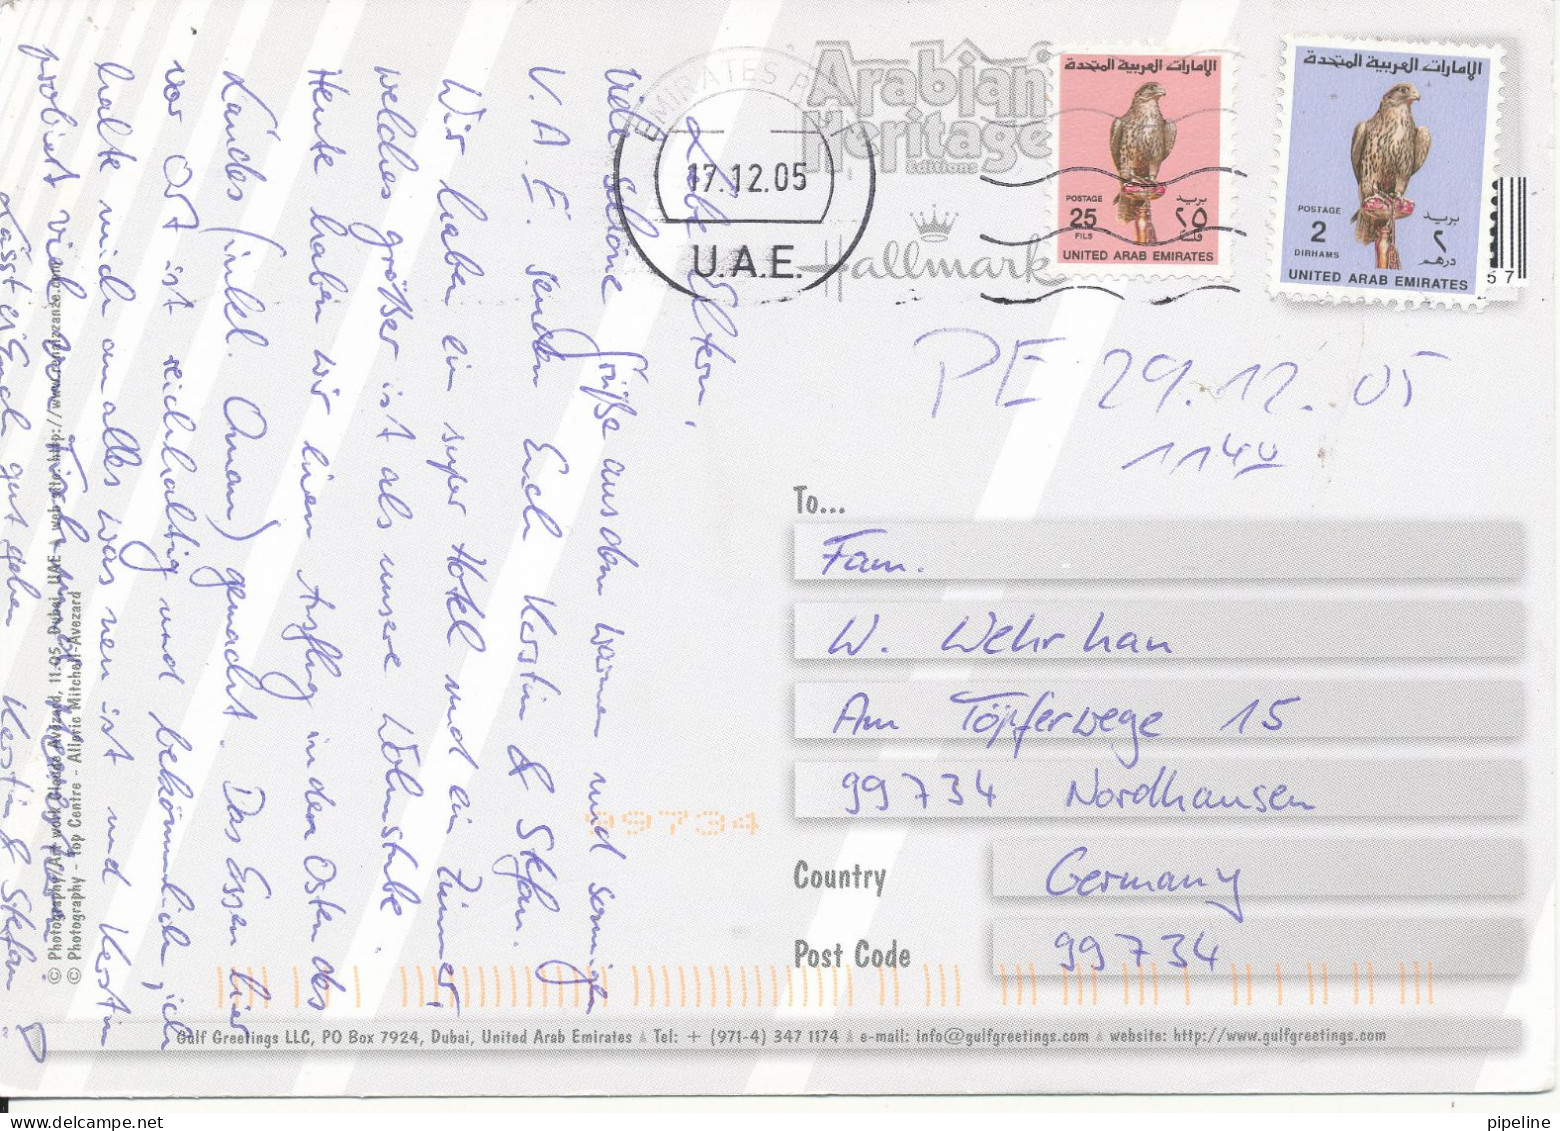 Arabian
Heritage
Editions
Hallmark
EMIRATES
17.12.05
U.A.E.
الإمارات العربية المتحدة
POSTAGE
25
FILS
بريد
٢٥
فلسا
UNITED ARAB EMIRATES
الإمارات العربية المتحدة
POSTAGE
2
DIRHAMS
بريد
٢
درهم
UNITED ARAB EMIRATES
57
PE 29.12.05
11 40
Liebe Eltern,
viele schöne Grüße aus den warmen und sonnigen
V.A.E. senden Euch Kerstin & Stefan.
Wir haben ein super Hotel und ein Zimmer,
welches größer ist als unsere Wohnstube.
Heute haben wir einen Ausflug in den Osten des
Landes (inkl. Oman) gemacht. Das Essen hier
vor Ort ist reichhaltig und bekömmlich, ich
halte mich an alles was neu ist und Kerstin
probiert viel von
Lasst es Euch gut gehen Kerstin & Stefan
To...
Fam.
W. Wehrhan
Am Töpferwege 15
99734 Nordhausen
Country
Germany
Post Code
99734
99734
© Photography/Art work Claude Avezard, 11-05, Dubai, UAE web site: http://www.renaizzanze.com
© Photography - Top Centre - Alleric Mitchell-Avezard
Gulf Greetings LLC, PO Box 7924, Dubai, United Arab Emirates Tel: + (971-4) 347 1174 e-mail: info@gulfgreetings.com website: http://www.gulfgreetings.com
pipeline